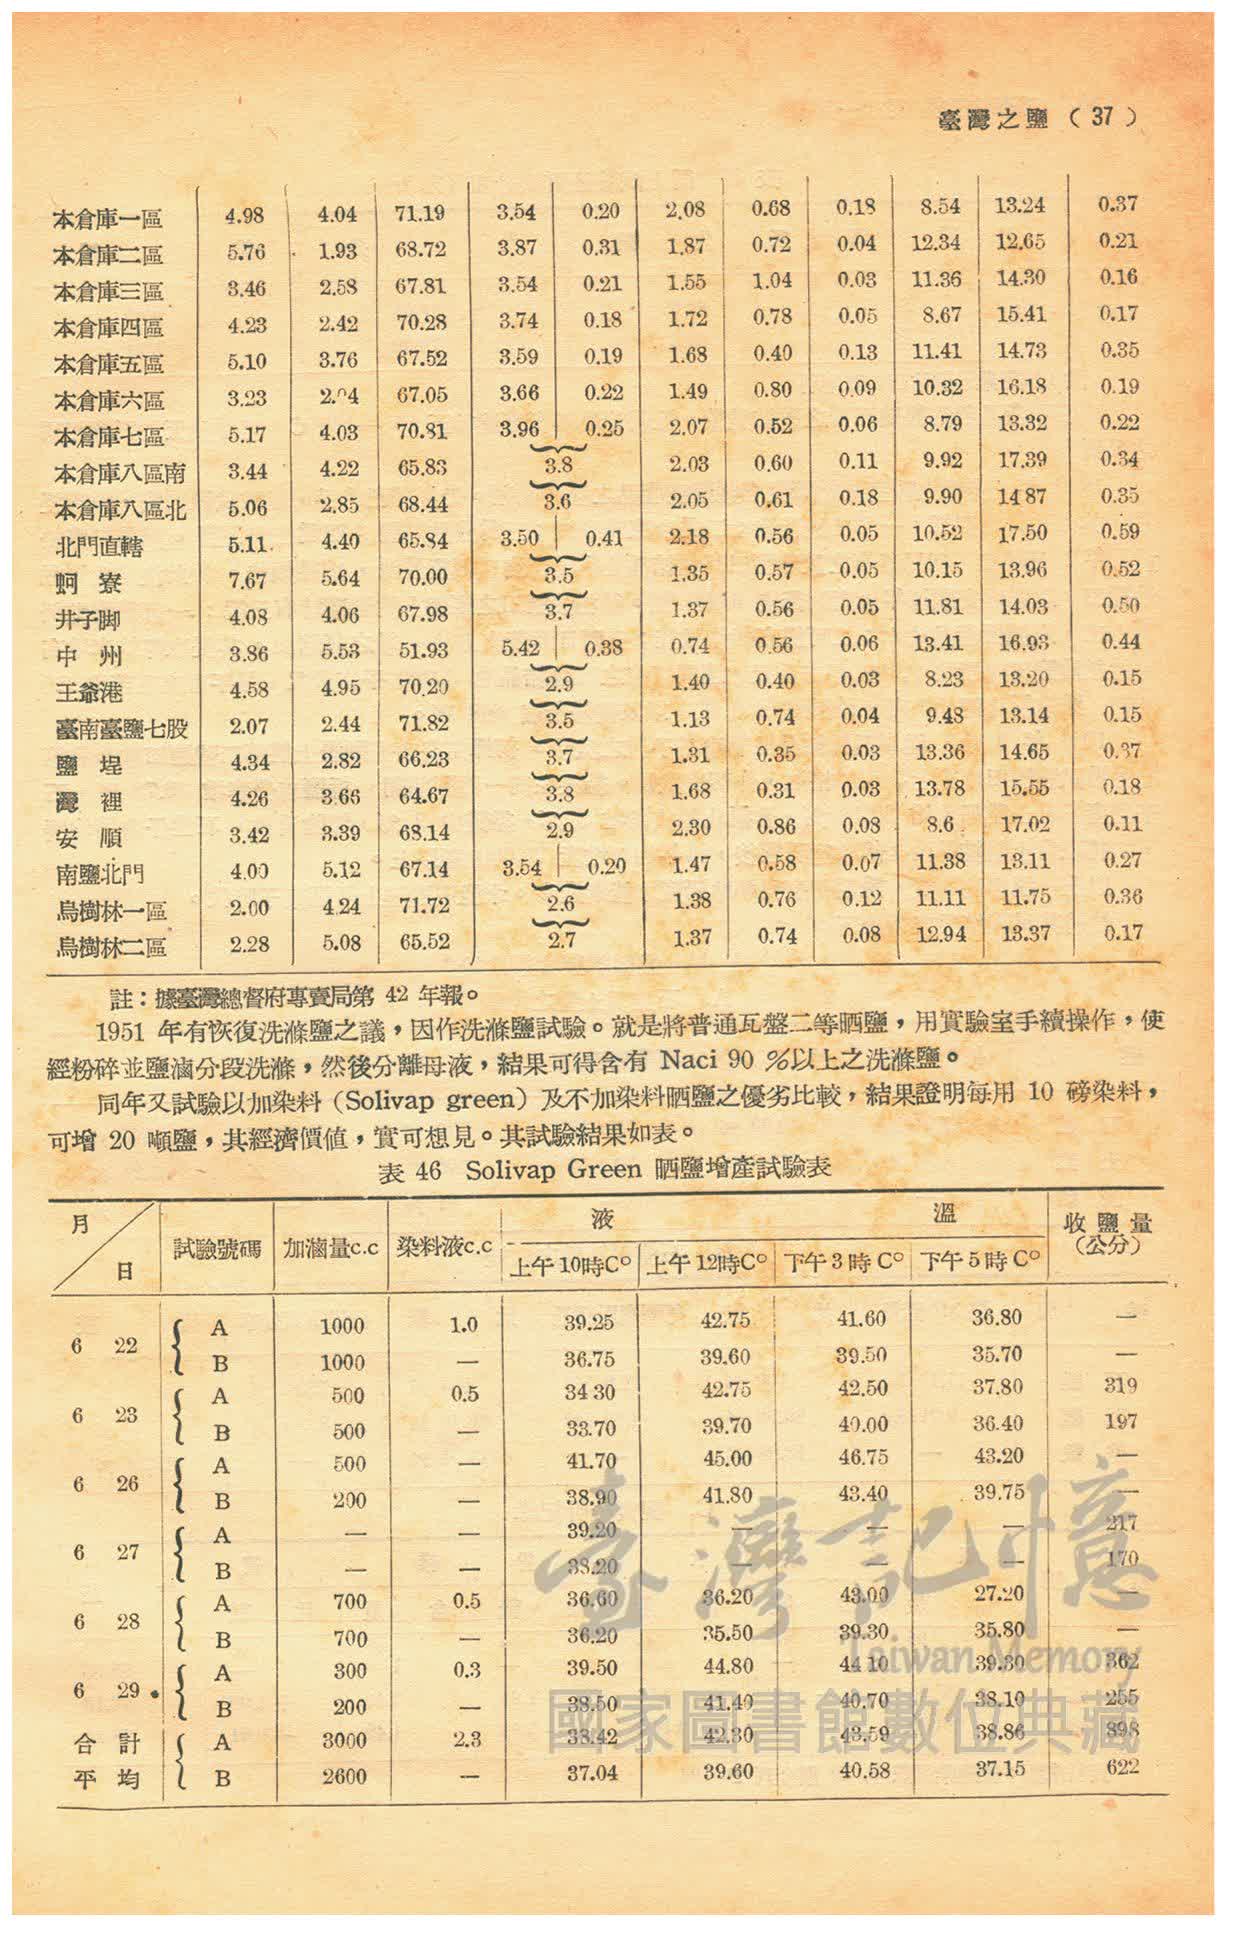 臺灣之鹽 ( 37 )
本倉庫一區 4.98 4.04 71.19 3.54 0.20 2.08 0.68 0.18 8.54 13.24 0.37
本倉庫二區 5.76 1.93 68.72 3.87 0.31 1.87 0.72 0.04 12.34 12.65 0.21
本倉庫三區 3.46 2.58 67.81 3.54 0.21 1.55 1.04 0.03 11.36 14.30 0.16
本倉庫四區 4.23 2.42 70.28 3.74 0.18 1.72 0.78 0.05 8.67 15.41 0.17
本倉庫五區 5.10 3.76 67.52 3.59 0.19 1.68 0.40 0.13 11.41 14.73 0.35
本倉庫六區 3.23 67.05 3.66 0.22 1.49 0.80 0.09 10.32 16.18 0.19
本倉庫七區 5.17 4.03 70.81 3.96 0.25 2.07 0.52 0.06 8.79 13.32 0.22
本倉庫八區南 3.44 4.22 65.83 3.8 2.03 0.60 0.11 9.92 17.39 0.34
本倉庫八區北 5.06 2.85 68.44 3.6 2.05 0.61 0.18 9.90 14 87 0.35
北門直轄 5.11 4.40 65.84 3.50 0.41 2.18 0.56 0.05 10.52 17.50 0.59
蚵寮 7.67 5.64 70.00 3.5 1.35 0.57 0.05 10.15 13.96 0.52
井子脚 4.08 4.06 67.98 3.7 1.37 0.56 0.05 11.81 14.03 0.50
中州 3.86 5.53 51.93 5.42 0.38 0.74 0.56 0.06 13.41 16.93 0.44
王爺港 4.58 4.95 70.20 2.9 1.40 0.40 0.03 8.23 13.20 0.15
臺南臺鹽七股 2.07 2.44 71.82 3.5 1.13 0.74 0.04 9.48 13.14 0.15
鹽埕 4.34 2.82 66.23 3.7 1.31 0.35 0.03 13.36 14.65 0.37
灣裡 4.26 3.66 64.67 3.8 1.68 0.31 0.03 13.78 15.55 0.18
安順 3.42 3.39 68.14 2.9 2.30 0.86 0.08 8.6 17.02 0.11
南鹽北門 4.00 5.12 67.14 3.54 0.20 1.47 0.58 0.07 11.38 13.11 0.27
烏樹林一區 2.00 4.24 71.72 2.6 1.38 0.76 0.12 11.11 11.75 0.36
烏樹林二區 2.28 5.08 65.52 2.7 1.37 0.74 0.08 12.94 13.37 0.17
註：據臺灣總督府專賣局第 42 年報。
1951 年有恢復洗滌鹽之議，因作洗滌鹽試驗。就是將普通瓦盤二等晒鹽，用實驗室手續操作，使
經粉碎並鹽滷分段洗滌，然後分離母液，結果可得含有 Naci 90 %以上之洗滌鹽。
同年又試驗以加染料（Solivap green）及不加染料晒鹽之優劣比較，結果證明每用 10 磅染料，
可增 20 噸鹽，其經濟價値，實可想見。其試驗結果如表。
表 46 Solivap Green 晒鹽增產試驗表
月 日 試驗號碼 加滷量c.c 染料液c.c 液 溫 收鹽量（公分）
上午10時C° 上午12時C° 下午3時C° 下午5時C°
6 22 A 1000 1.0 39.25 42.75 41.60 36.80 —
B 1000 — 36.75 39.60 39.50 35.70 —
6 23 A 500 0.5 34 30 42.75 42.50 37.80 319
B 500 — 33.70 39.70 40.00 36.40 197
6 26 A 500 — 41.70 45.00 46.75 43.20 —
B 200 — 38.90 41.80 43.40 39.75 —
6 27 A — — 39.20 — — — 217
B — — 38.20 — — — 170
6 28 A 700 0.5 36.60 36.20 43.00 27.20 —
B 700 — 36.20 35.50 39.30 35.80 —
6 29 A 300 0.3 39.50 44.80 44 10 39.30 362
B 200 — 38.50 41.40 40.70 38.10 255
合計 A 3000 2.3 38.42 42.30 43.59 38.86 898
平均 B 2600 — 37.04 39.60 40.58 37.15 622
臺灣記憶
Taiwan Memory
國家圖書館數位典藏